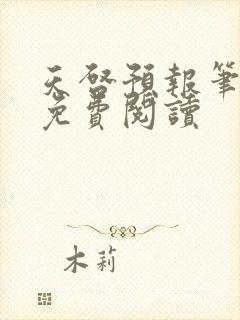 天啓預報筆
免費閱讀
木莉